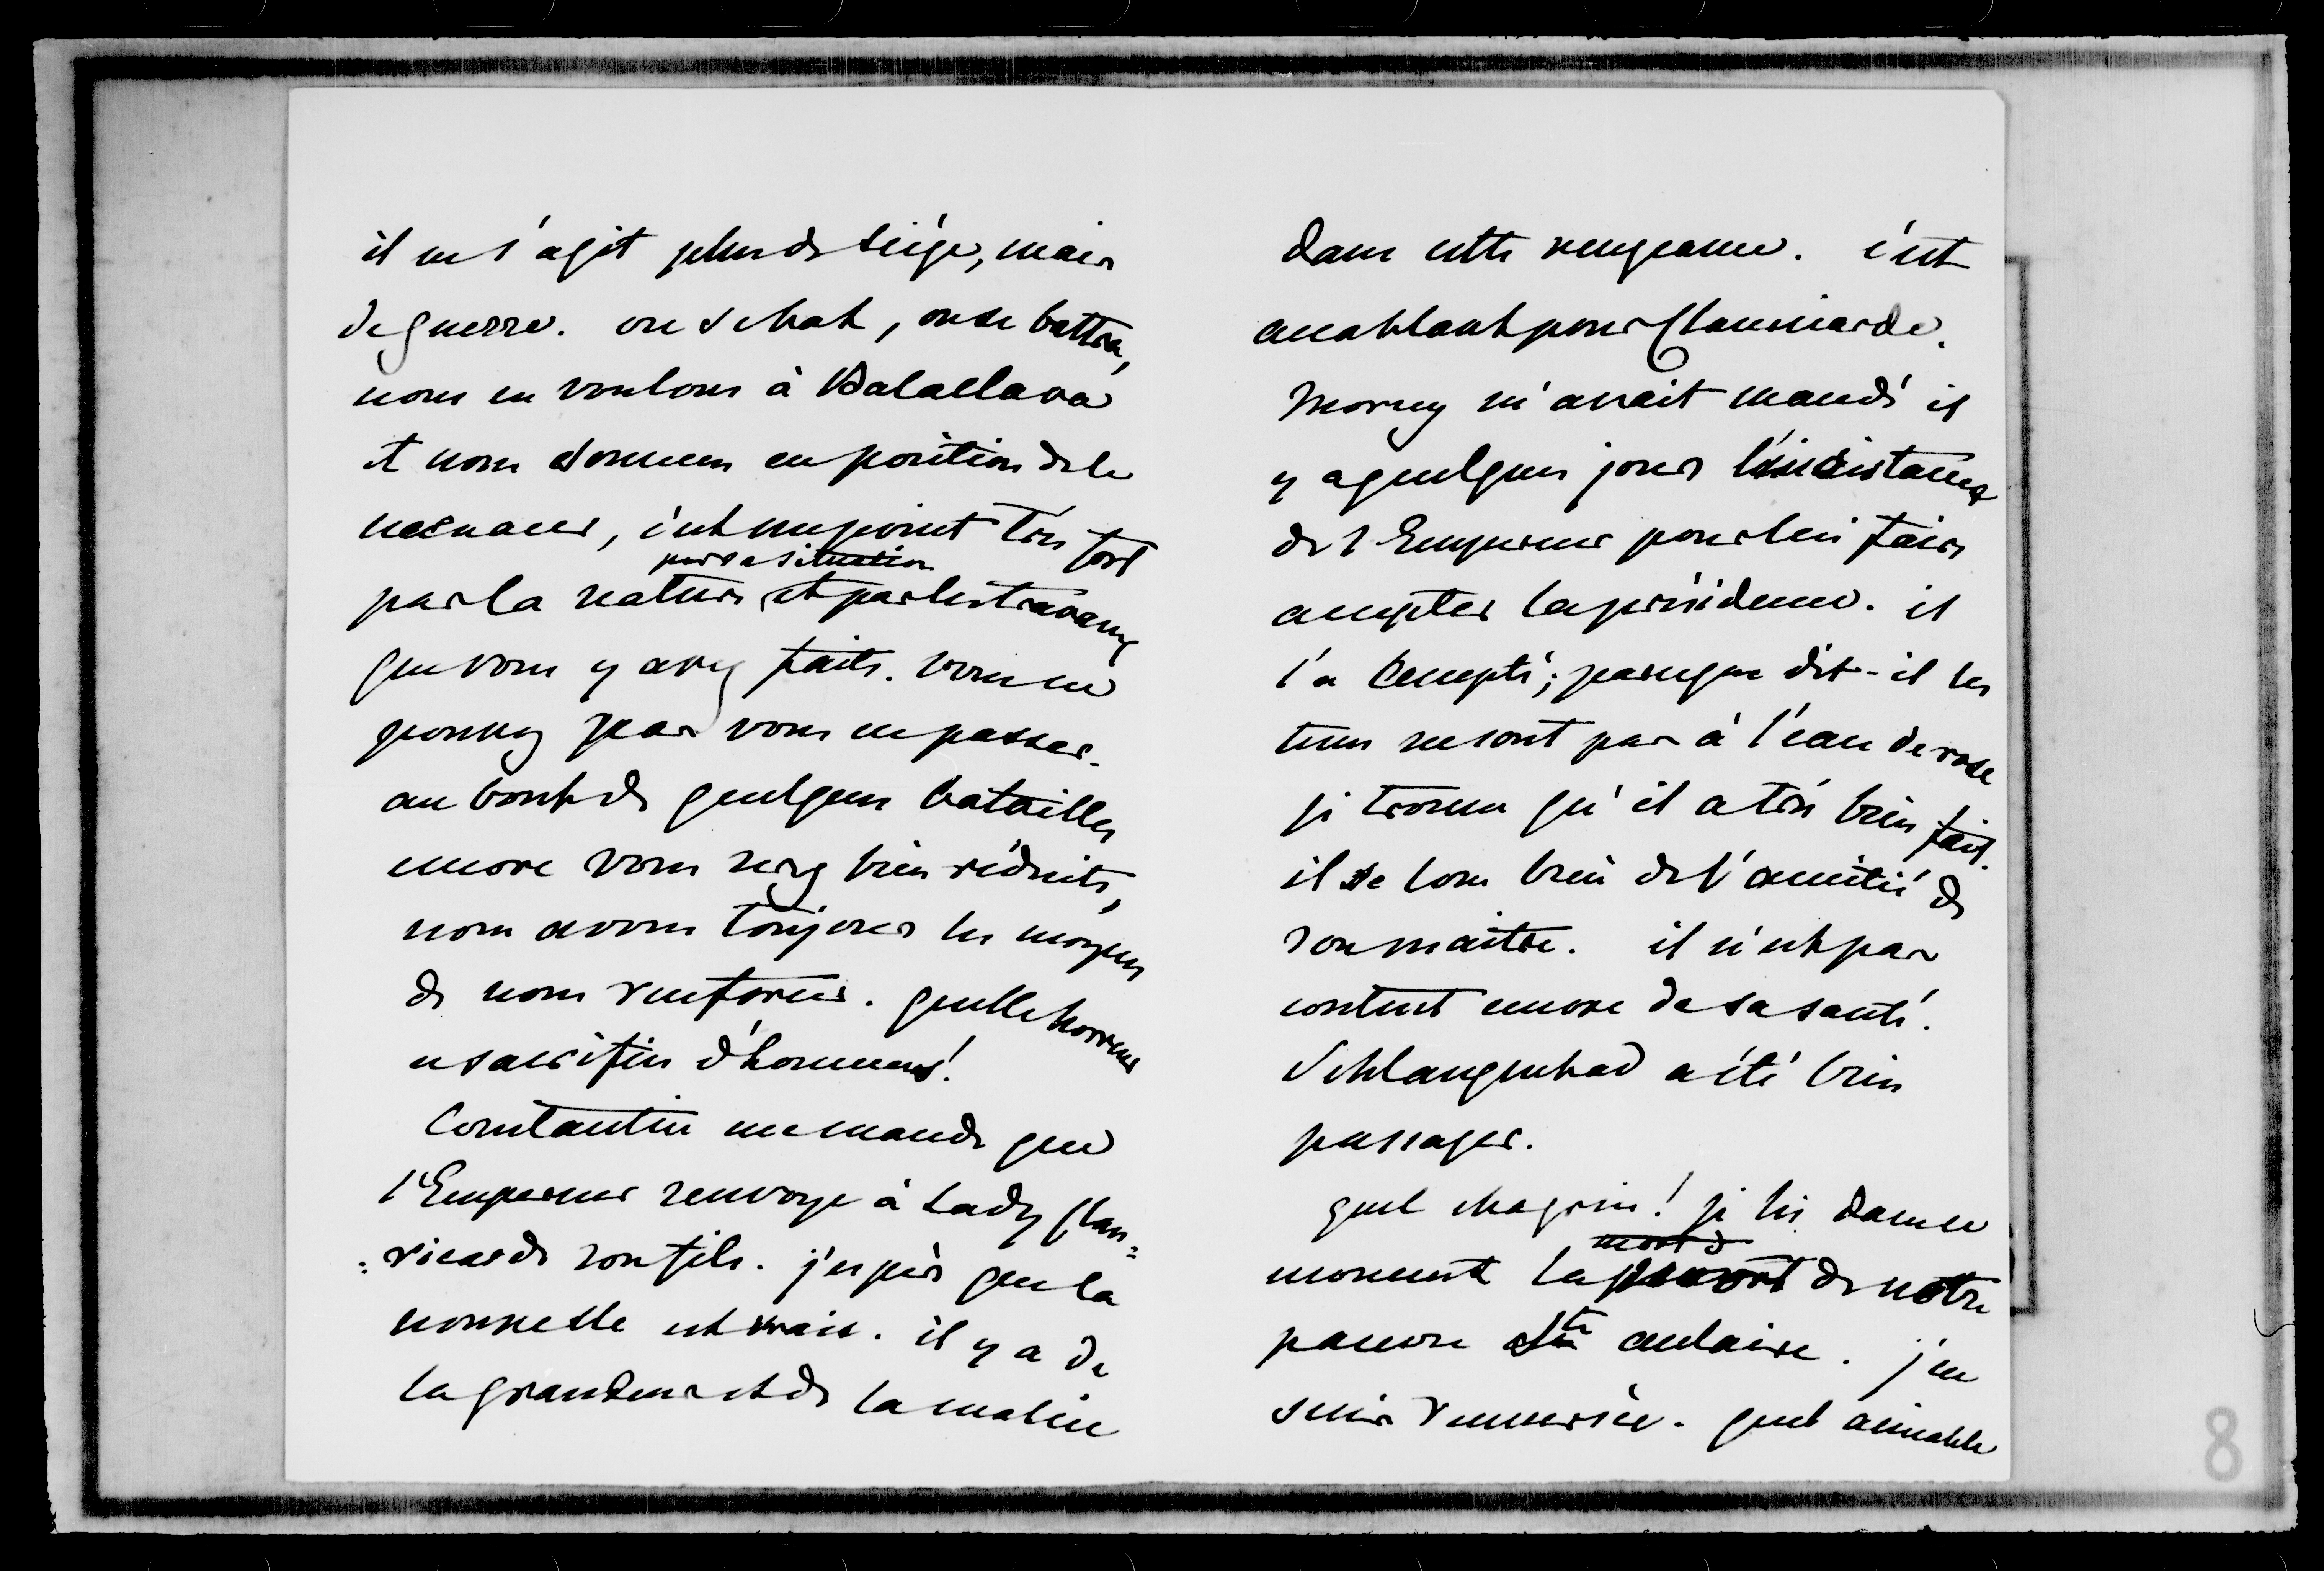 il ne s'agit plus de siége, mais
de guerre. on se bat, on se battra,
nous en voulons à Balaclava
et nous sommes en position de le
menacer, c'est un point très fort
par sa situation
par la nature et par les travaux
que vous y avez faits. vous ne
pouvez pas vous en passer.
au bout de quelques batailles
encore vous serez bien réduits,
nous avons toujours les moyens
de nous renforcer. quelle horreur
ce sacrifice d'hommes!
Constantin me mande que
l'Empereur renvoye à Lady Clan=
=ricarde son fils. j'espère que la
nouvelle est vraie. il y a de
la grandeur et de la malice
dans cette vengeance. c'est
accablant pour Clanricarde.
Morny m'avait mandé il
y a quelques jours l'insistance
de l'Empereur pour lui faire
accepter la présidence. il
l'a accepté; parceque dit-il les
tems ne sont pas à l'eau de rose
je trouve qu'il a très bien fait.
il se loue bien de l'amitié de
son maitre. il n'est pas
content encore de sa santé.
Schlangenbad a été bien
passager.
quel chagrin! je lis dans ce
mort d
moment la mort de notre
pauvre Ste Aulaire. j'en
suis renversée. quel aimable
8